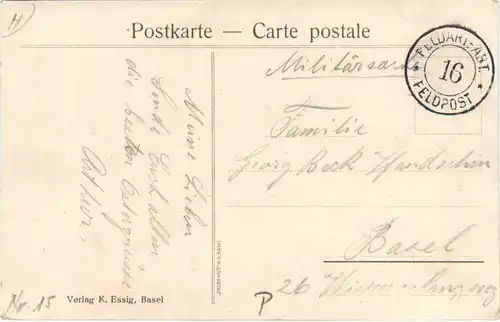 H
Postkarte — Carte postale
FELDART.-ABT.
16
FELDPOST
Militärsache
Familie
Georg Beck Handschin
Basel
26
Meine Lieben
Sende Euch allen
die besten Ostergrüsse
Arthur.
Nr. 15
Verlag K. Essig, Basel
P